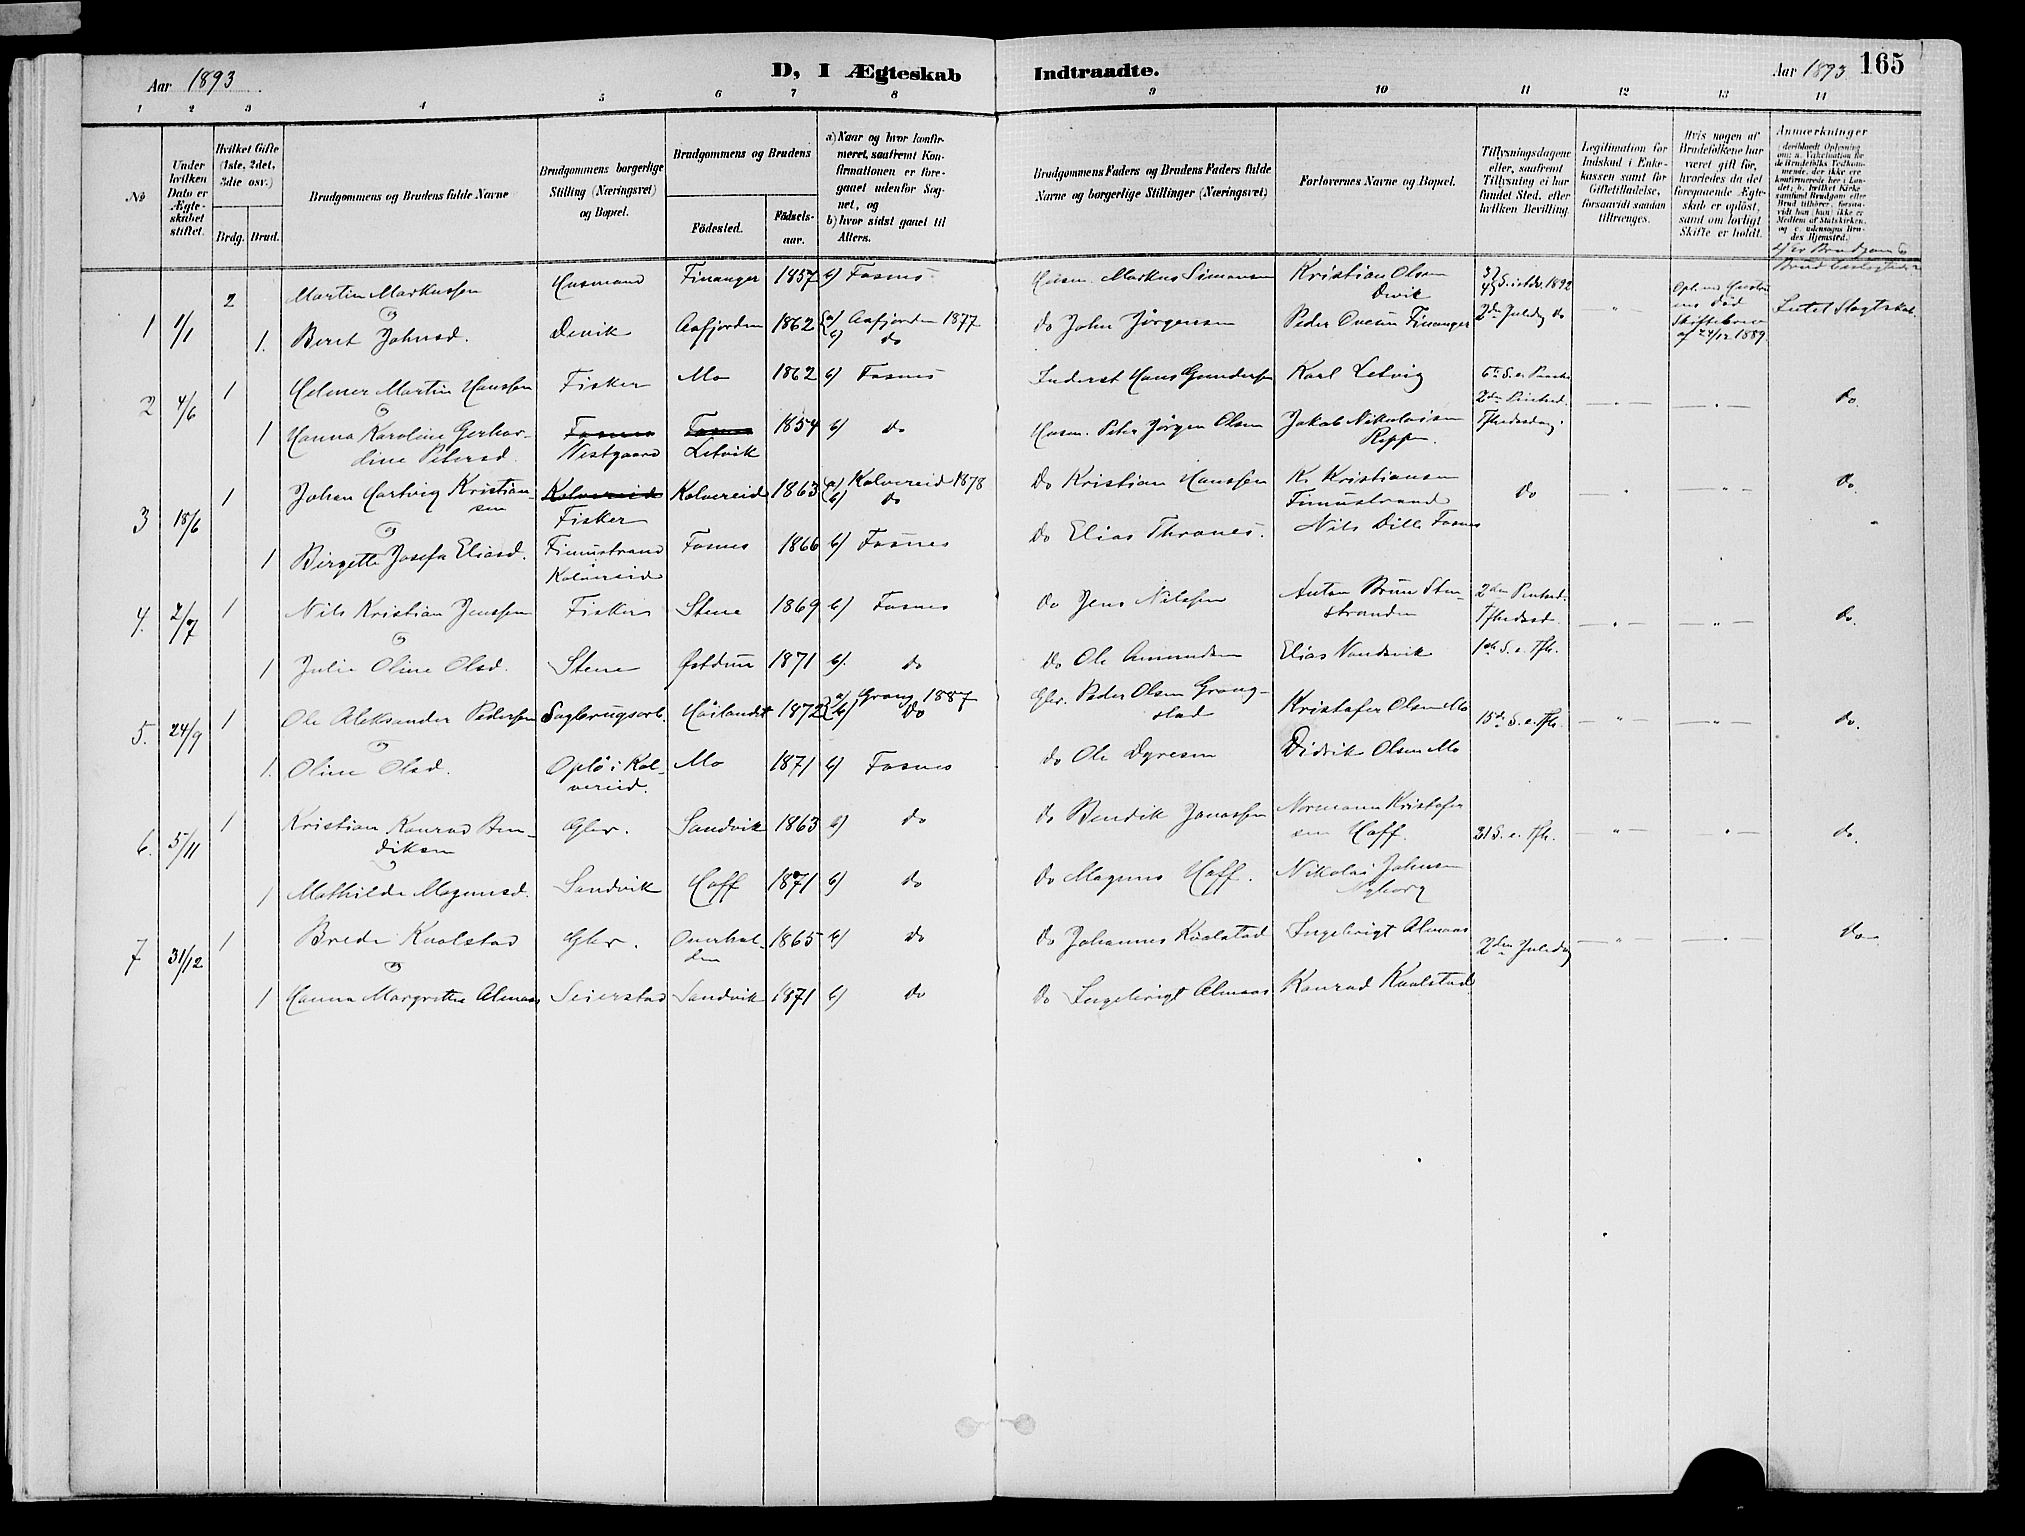 Aar 1893
D, I Ægteskab Indtraadte.
Aar 1893 165
1 2 3 4 5 6 7 8 9 10 11 12 13 14
No
Under hvilken Dato er Ægteskabet stiftet.
Hvilket Gifte (1ste, 2det, 3die osv.)
Brdg. Brud.
Brudgommens og Brudens fulde Navne
Brudgommens borgerlige Stilling (Næringsvei) og Bopæl.
Brudgommens og Brudens
Fødested. Fødsels-aar.
a) Naar og hvor konfirmeret, saafremt Konfirmationen er foregaaet udenfor Sognet, og
b) hvor sidst gaaet til Alters.
Brudgommens Faders og Brudens Faders fulde Navne og borgerlige Stillinger (Næringsvei)
Forlovernes Navne og Bopæl.
Tillysningsdagene eller, saafremt Tillysning ei har fundet Sted, efter hvilken Bevilling.
Legitimation for Indskud i Enkekassen samt for Giftetilladelse, forsaavidt saadan tiltrænges.
Hvis nogen af Brudefolkene har været gift før, hvorledes da det foregaaende Ægteskab er opløst, samt om lovligt Skifte er holdt.
Anmærkninger
1 1/1 2 Martin Markussen Husmand Finanger 1857 b) Fosnes Husm. Markus Simonsen Kristian Olsen Devik 1892
&
1. Beret Johnsd. Devik Aafjorden 1862 a) Aafjorden 1877 b) do do John Jørgensen Peder Ovesen Finanger 2den Juledag do 24/12 1889. Intet Slegtskab.
2 4/6 1 Helmer Martin Hanssen Fisker Mo 1862 b) Fosnes Inderst Hans Gundersen Karl Letvig
&
1 Hanna Karoline Gerhardine Petersd. Fosnes Vestgaard Fosnes Letvik 1854 b) do Husm. Peter Jørgen Olsen Jakob Nikolaisen do.
3 18/6 1 Johan Hartvig Kristiansen Kolvereid Fisker Kolvereid 1863 a) Kolvereid 1878 b) do Do Kristian Hanssen K. Kristiansen Finnestrand do do.
&
1 Birgitte Josefa Eliasd. Finnestrand Kolvereid Fosnes 1866 b) Fosnes do Elias Thranes. Nils Dille Fosnes
4. 2/7 1 Nils Kristian Jenssen Fisker Stene 1869 b) Fosnes do Jens Nilssen Anton Brun Stenstranden do.
&
1 Julie Oline Olsd. Stene 1871 b). do do Ole Amundsen Elias Vandsvik
5. 24/9 1 Ole Aleksander Pedersen Sagbrugsarb. Høilandet 1872 a) Grong 1887 b) do Gbr. Peder Olsen Grongstad Kristofer Olsen Mo 15de S. e. Tfh. do.
&
1. Oline Olsd. Oplø i Kolvereid. Mo 1871 b) Fosnes do Ole Dyresen Didrik Olsen Mo
6. 5/11 1 Kristian Konrad Bendiksen Gbr. Sandvik 1863 b) do do Bendik Jonassen Normann Kristofersen Hoff. do.
&
1 Mathilde Magnusd. Sandvik Hoff 1871 b) do do Magnus Hoff. Nikolai Johnsen Nyborg
7 31/12 1 Brede Kvalstad Gbr. Overhalden 1865 b) do do Johannes Kvalstad Ingebrigt Almaas 2den Juledag do
&
1 Hanna Margrethe Almaas Seierstad Sandvik 1871 b) do do Ingebrigt Almaas Konrad Kvalstad